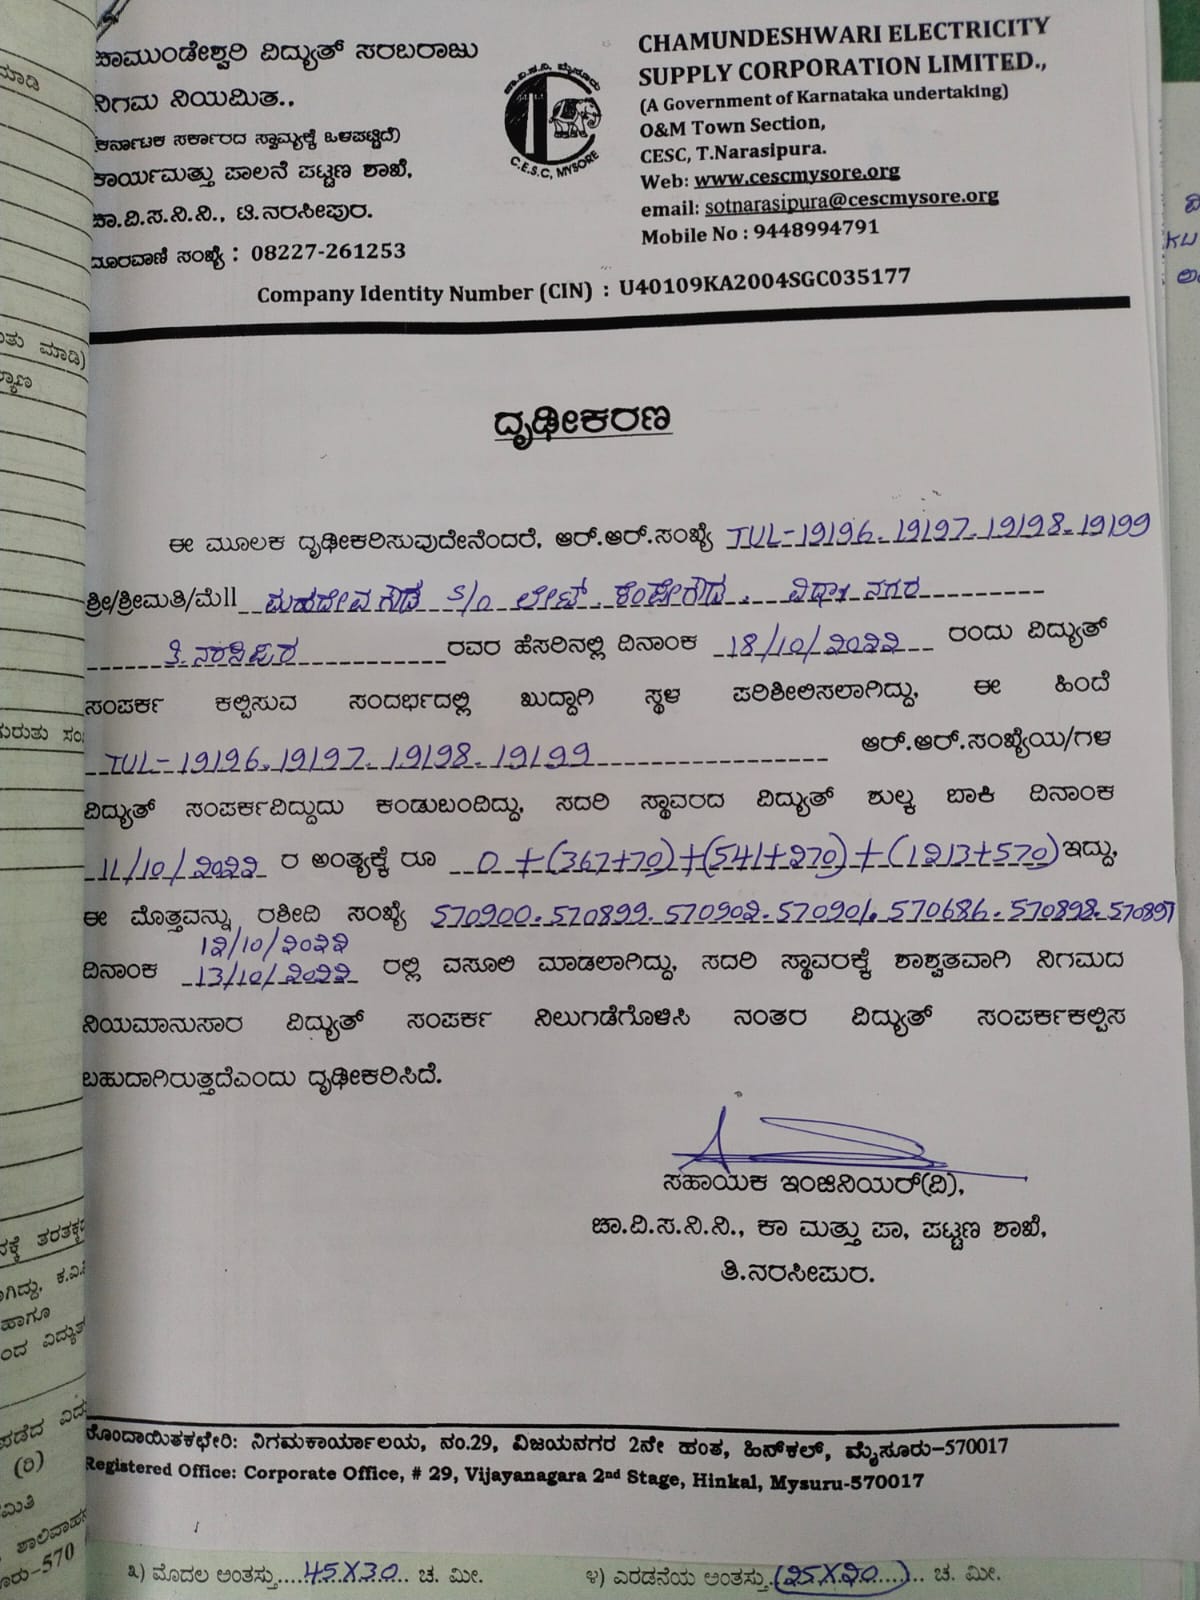 ಚಾಮುಂಡೇಶ್ವರಿ ವಿದ್ಯುತ್ ಸರಬರಾಜು
ನಿಗಮ ನಿಯಮಿತ..
(ಕರ್ನಾಟಕ ಸರ್ಕಾರದ ಸ್ವಾಮ್ಯಕ್ಕೆ ಒಳಪಟ್ಟಿದೆ)
ಕಾರ್ಯಮತ್ತು ಪಾಲನೆ ಪಟ್ಟಣ ಶಾಖೆ,
ಚಾ.ವಿ.ಸ.ನಿ.ನಿ., ಟಿ.ನರಸೀಪುರ.
ದೂರವಾಣಿ ಸಂಖ್ಯೆ : 08227-261253
ಚಾ.ವಿ.ಸ.ನಿ. ಮೈಸೂರು
C.E.S.C, MYSORE
CHAMUNDESHWARI ELECTRICITY
SUPPLY CORPORATION LIMITED.,
(A Government of Karnataka undertaking)
O&M Town Section,
CESC, T.Narasipura.
Web: www.cescmysore.org
email: sotnarasipura@cescmysore.org
Mobile No : 9448994791
Company Identity Number (CIN) : U40109KA2004SGC035177
ದೃಢೀಕರಣ
ಈ ಮೂಲಕ ದೃಢೀಕರಿಸುವುದೇನೆಂದರೆ, ಆರ್.ಆರ್.ಸಂಖ್ಯೆ TUL-19196.19197.19198.19199
ಶ್ರೀ/ಶ್ರೀಮತಿ/ಮೆ|| ಮಹದೇವಗೌಡ S/o ಲೇಟ್. ಕೆಂಪೇಗೌಡ. ವಿದ್ಯಾನಗರ
ತಿ.ನರಸೀಪುರ ರವರ ಹೆಸರಿನಲ್ಲಿ ದಿನಾಂಕ 18/10/2022 ರಂದು ವಿದ್ಯುತ್
ಸಂಪರ್ಕ ಕಲ್ಪಿಸುವ ಸಂದರ್ಭದಲ್ಲಿ ಖುದ್ದಾಗಿ ಸ್ಥಳ ಪರಿಶೀಲಿಸಲಾಗಿದ್ದು, ಈ ಹಿಂದೆ
TUL-19196.19197.19198.19199 ಆರ್.ಆರ್.ಸಂಖ್ಯೆಯ/ಗಳ
ವಿದ್ಯುತ್ ಸಂಪರ್ಕವಿದ್ದುದು ಕಂಡುಬಂದಿದ್ದು, ಸದರಿ ಸ್ಥಾವರದ ವಿದ್ಯುತ್ ಶುಲ್ಕ ಬಾಕಿ ದಿನಾಂಕ
11/10/2022 ರ ಅಂತ್ಯಕ್ಕೆ ರೂ 0+(367+70)+(541+270)+(1213+570) ಇದ್ದು,
ಈ ಮೊತ್ತವನ್ನು ರಶೀದಿ ಸಂಖ್ಯೆ 570900.570899.570902.570901.570686.570898.570897
12/10/2022
ದಿನಾಂಕ 13/10/2022 ರಲ್ಲಿ ವಸೂಲಿ ಮಾಡಲಾಗಿದ್ದು, ಸದರಿ ಸ್ಥಾವರಕ್ಕೆ ಶಾಶ್ವತವಾಗಿ ನಿಗಮದ
ನಿಯಮಾನುಸಾರ ವಿದ್ಯುತ್ ಸಂಪರ್ಕ ನಿಲುಗಡೆಗೊಳಿಸಿ ನಂತರ ವಿದ್ಯುತ್ ಸಂಪರ್ಕಕಲ್ಪಿಸ
ಬಹುದಾಗಿರುತ್ತದೆಎಂದು ದೃಢೀಕರಿಸಿದೆ.
ಸಹಾಯಕ ಇಂಜಿನಿಯರ್(ವಿ),
ಚಾ.ವಿ.ಸ.ನಿ.ನಿ., ಕಾ ಮತ್ತು ಪಾ, ಪಟ್ಟಣ ಶಾಖೆ,
ತಿ.ನರಸೀಪುರ.
ನೊಂದಾಯಿತಕಛೇರಿ: ನಿಗಮಕಾರ್ಯಾಲಯ, ನಂ.29, ವಿಜಯನಗರ 2ನೇ ಹಂತ, ಹಿನ್‌ಕಲ್, ಮೈಸೂರು-570017
Registered Office: Corporate Office, # 29, Vijayanagara 2nd Stage, Hinkal, Mysuru-570017
೩) ಮೊದಲ ಅಂತಸ್ತು....45X30.... ಚ. ಮೀ. ೪) ಎರಡನೆಯ ಅಂತಸ್ತು.(25X20).... ಚ. ಮೀ.